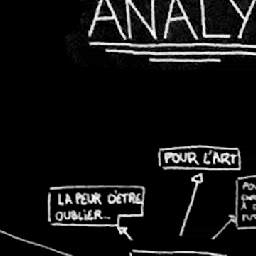 ANALY
POUR L'ART
LA PEUR D'ÊTRE
OUBLIER...